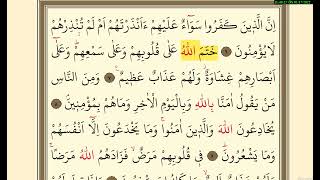 اِنَّ الَّذٖينَ كَفَرُوا سَوَٓاءٌ عَلَيْهِمْ ءَاَنْذَرْتَهُمْ اَمْ لَمْ تُنْذِرْهُمْ
لَا يُؤْمِنُونَ ﴿٦﴾ خَتَمَ اللّٰهُ عَلٰى قُلُوبِهِمْ وَعَلٰى سَمْعِهِمْ وَعَلٰٓى
اَبْصَارِهِمْ غِشَاوَةٌ وَلَهُمْ عَذَابٌ عَظٖيمٌ ﴿٧﴾ وَمِنَ النَّاسِ
مَنْ يَقُولُ اٰمَنَّا بِاللّٰهِ وَبِالْيَوْمِ الْاٰخِرِ وَمَا هُمْ بِمُؤْمِنٖينَ ﴿٨﴾
يُخَادِعُونَ اللّٰهَ وَالَّذٖينَ اٰمَنُوا وَمَا يَخْدَعُونَ اِلَّٓا اَنْفُسَهُمْ
وَمَا يَشْعُرُونَ ﴿٩﴾ فٖي قُلُوبِهِمْ مَرَضٌ فَزَادَهُمُ اللّٰهُ مَرَضًا